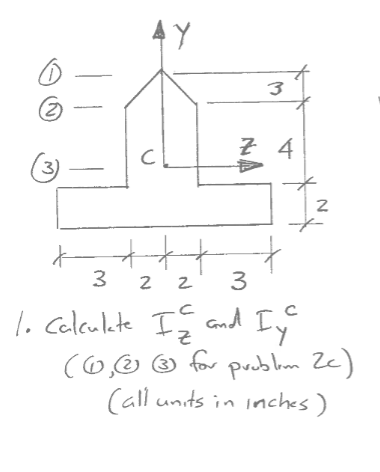 Y
①
②
③
C
Z
3
4
2
3 2 2 3
1. Calculate I_Z^C and I_Y^C
(①,② ③ for problem 2c)
(all units in inches)